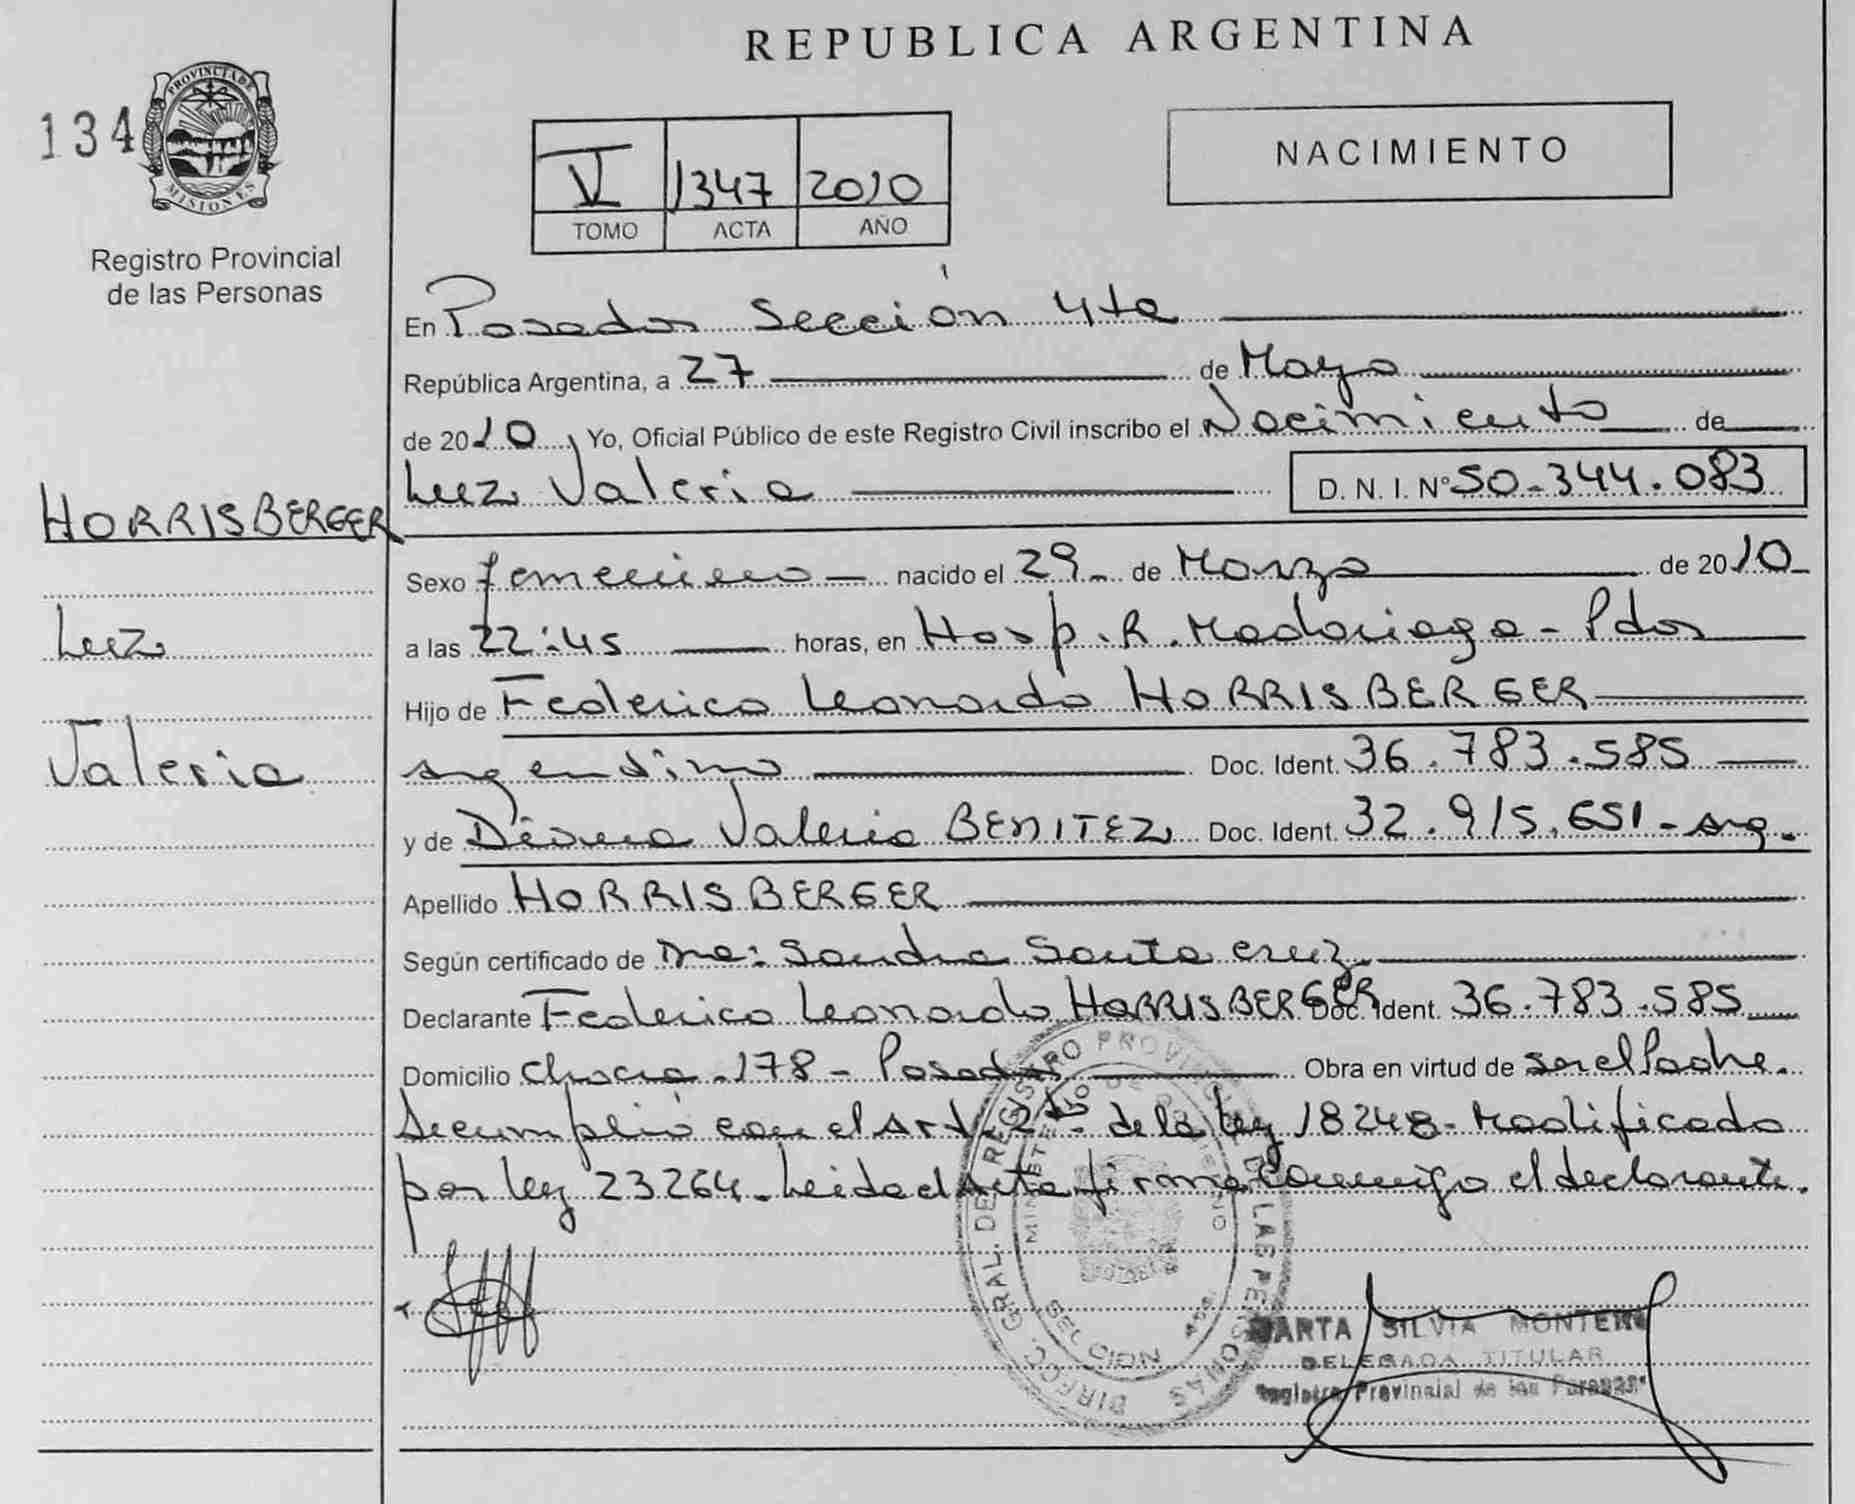 REPUBLICA ARGENTINA
134
PROVINCIA DE MISIONES
Registro Provincial
de las Personas
V 1347 2010
TOMO ACTA AÑO
NACIMIENTO
En Posadas Sección 4ta
República Argentina, a 27 de Mayo
de 2010 Yo, Oficial Público de este Registro Civil inscribo el Nacimiento de
Luz Valeria D. N. I. N° 50.344.083
HORRISBERGER
Luz
Valeria
Sexo femenino nacido el 29 de Marzo de 2010
a las 22:45 horas, en Hosp. R. Madariaga - Pdas
Hijo de Federico Leonardo HORRISBERGER
argentino Doc. Ident. 36.783.585
y de Valeria BENITEZ Doc. Ident. 32.915.651 - arg.
Apellido HORRISBERGER
Según certificado de Sandra Santa Cruz
Declarante Federico Leonardo HORRISBERGER Doc. Ident. 36.783.585
Domicilio Chacra 178 - Posadas Obra en virtud de ser el Padre.
Se cumplió con el Art. de la ley 18248 - Modificado
por ley 23264. Leida el Acta firma conmigo el declarante.
DIRECC. GRAL. DEL REGISTRO PROVINCIAL DE LAS PERSONAS
MARTA SILVIA MONTERO
DELEGADA TITULAR
Registro Provincial de las Personas